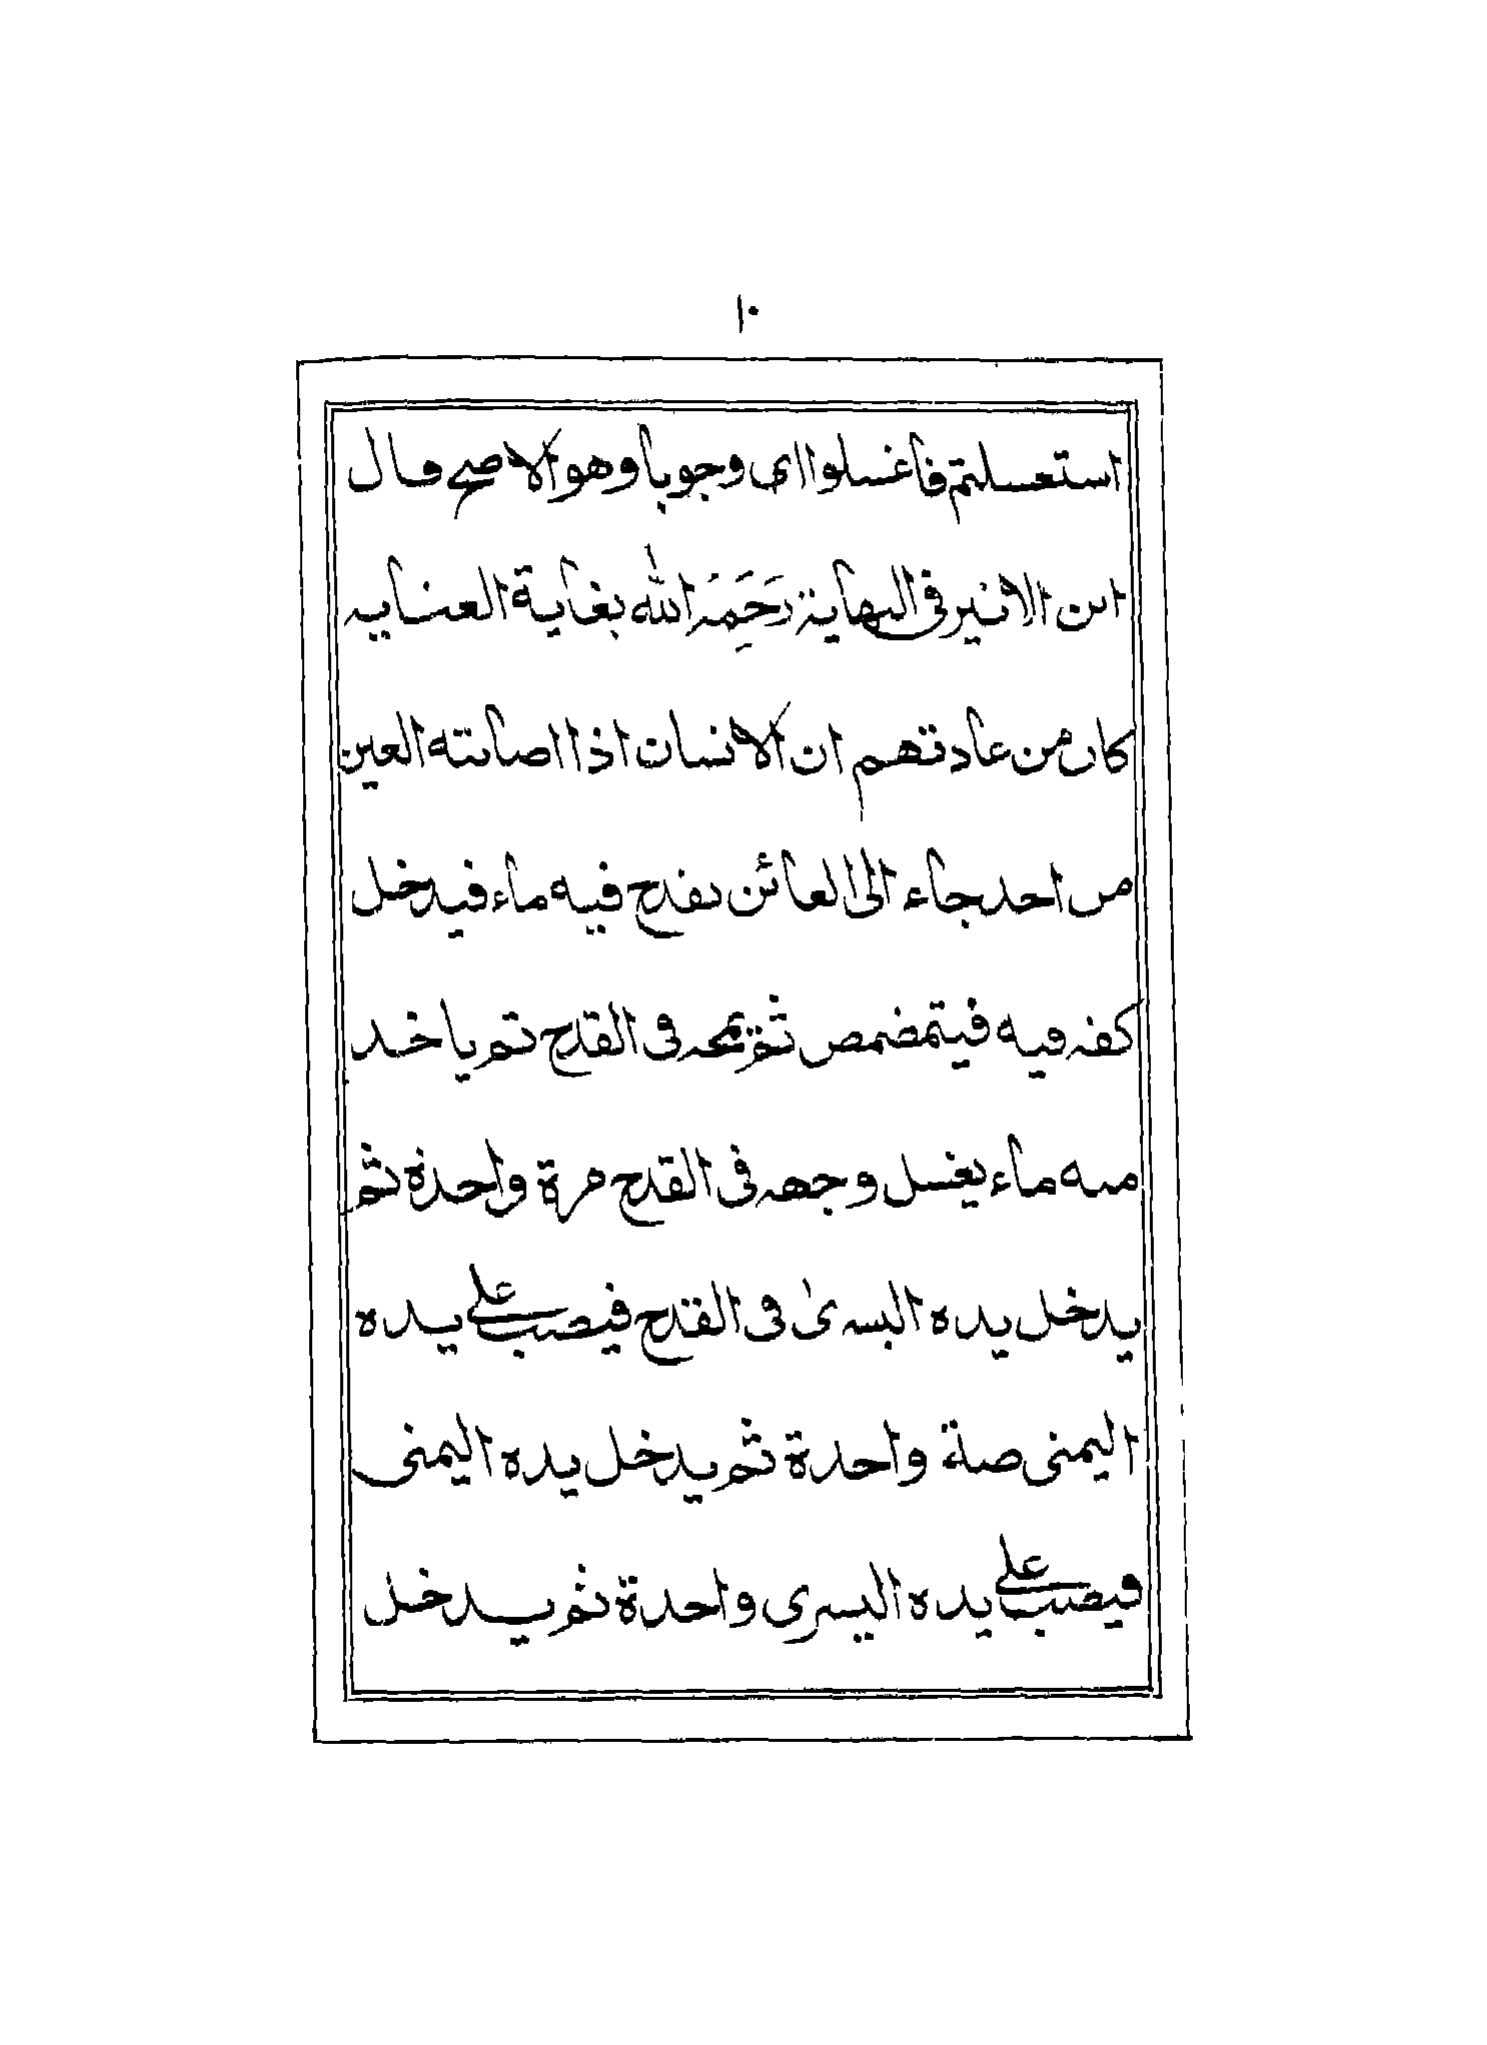 ١٠
استعسلتم فاغسلوا اى وجوبا وهو الاصح قال
ابن الاثير فى النهاية رَحِمَه الله بغاية العناية
كان من عادتهم ان الانسان اذا اصابته العين
من احد جاء الى العائن بقدح فيه ماء فيدخل
كفه فيه فيتمضمض ثم يمجه فى القدح ثم ياخد
منه ماء يغسل وجهه فى القدح مرة واحدة ثم
يدخل يده اليسرى فى القدح فيصب على يده
اليمنى صبة واحدة ثم يدخل يده اليمنى
فيصب على يده اليسرى واحدة ثم يدخل